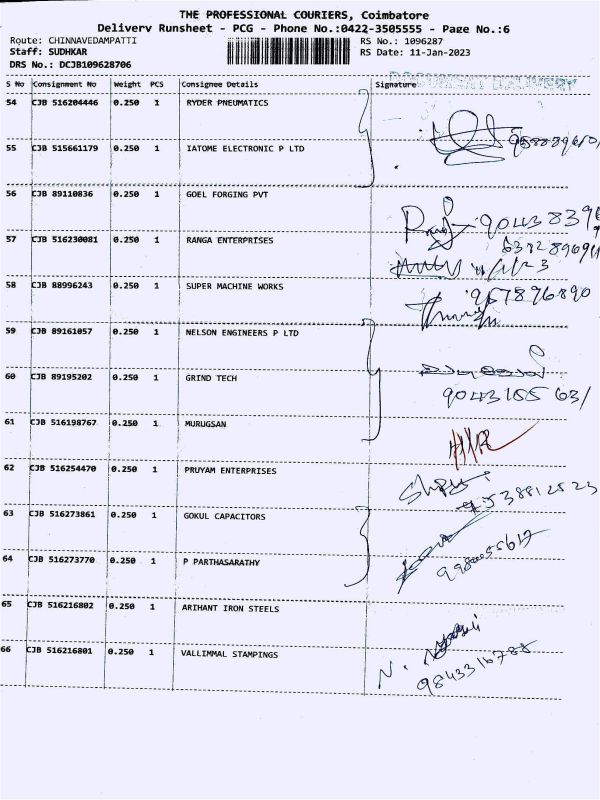 THE PROFESSIONAL COURIERS, Coimbatore
Delivery Runsheet - PCG - Phone No.:0422-3505555 - Page No.:6
Route: CHINNAVEDAMPATTI RS No.: 1096287
Staff: SUDHKAR RS Date: 11-Jan-2023
DRS No.: DCJB109628706
DOCUMENT DELIVERY
S No Consignment No Weight PCS Consignee Details Signature
54 CJB 516204446 0.250 1 RYDER PNEUMATICS
55 CJB 515661179 0.250 1 IATOME ELECTRONIC P LTD
56 CJB 89110836 0.250 1 GOEL FORGING PVT
57 CJB 516230081 0.250 1 RANGA ENTERPRISES
11/1/23
58 CJB 88996243 0.250 1 SUPER MACHINE WORKS
59 CJB 89161057 0.250 1 NELSON ENGINEERS P LTD
60 CJB 89195202 0.250 1 GRIND TECH
61 CJB 516198767 0.250 1 MURUGSAN
62 CJB 516254470 0.250 1 PRUYAM ENTERPRISES
63 CJB 516273861 0.250 1 GOKUL CAPACITORS
64 CJB 516273770 0.250 1 P PARTHASARATHY
65 CJB 516216802 0.250 1 ARIHANT IRON STEELS
66 CJB 516216801 0.250 1 VALLIMMAL STAMPINGS